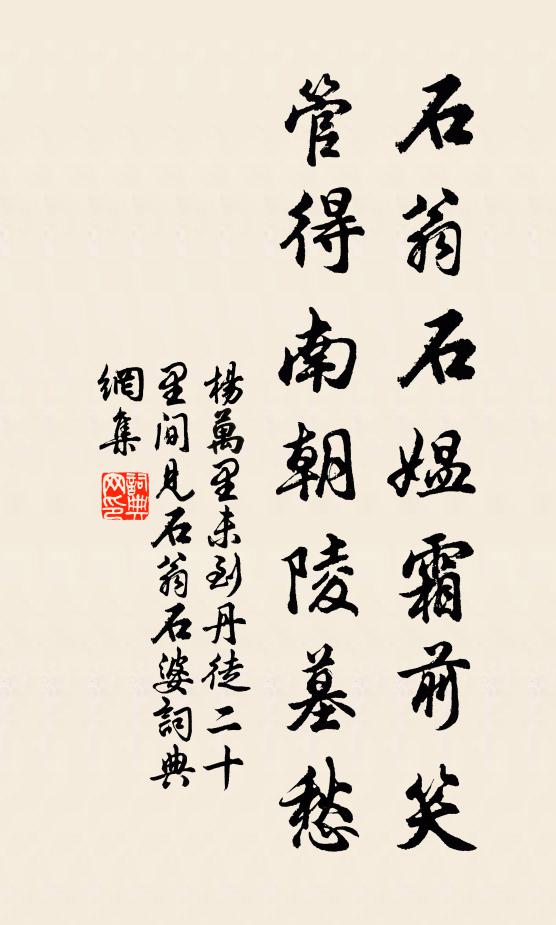 石翁石媼霜前笑
管得南朝陵墓愁
楊萬里未到丹徒二十
里間見石翁石婆詞典
網集
詞典
网印